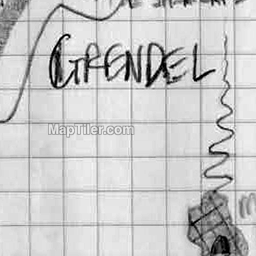 GRENDEL
MapTiler.com